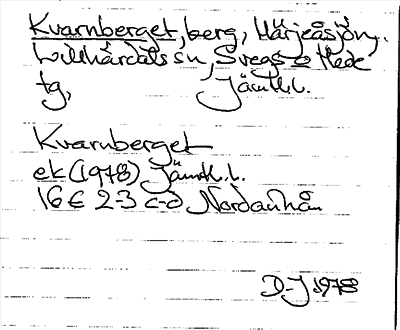 Kvarnberget, berg, Härjeåsjön,
Lillhärdals sn, Svegs o Hede
tg, Jämtl.l.
Kvarnberget
ek (1978) Jämtl.l.
16 E 2-3 c-d Nordanhån
D-J 1978